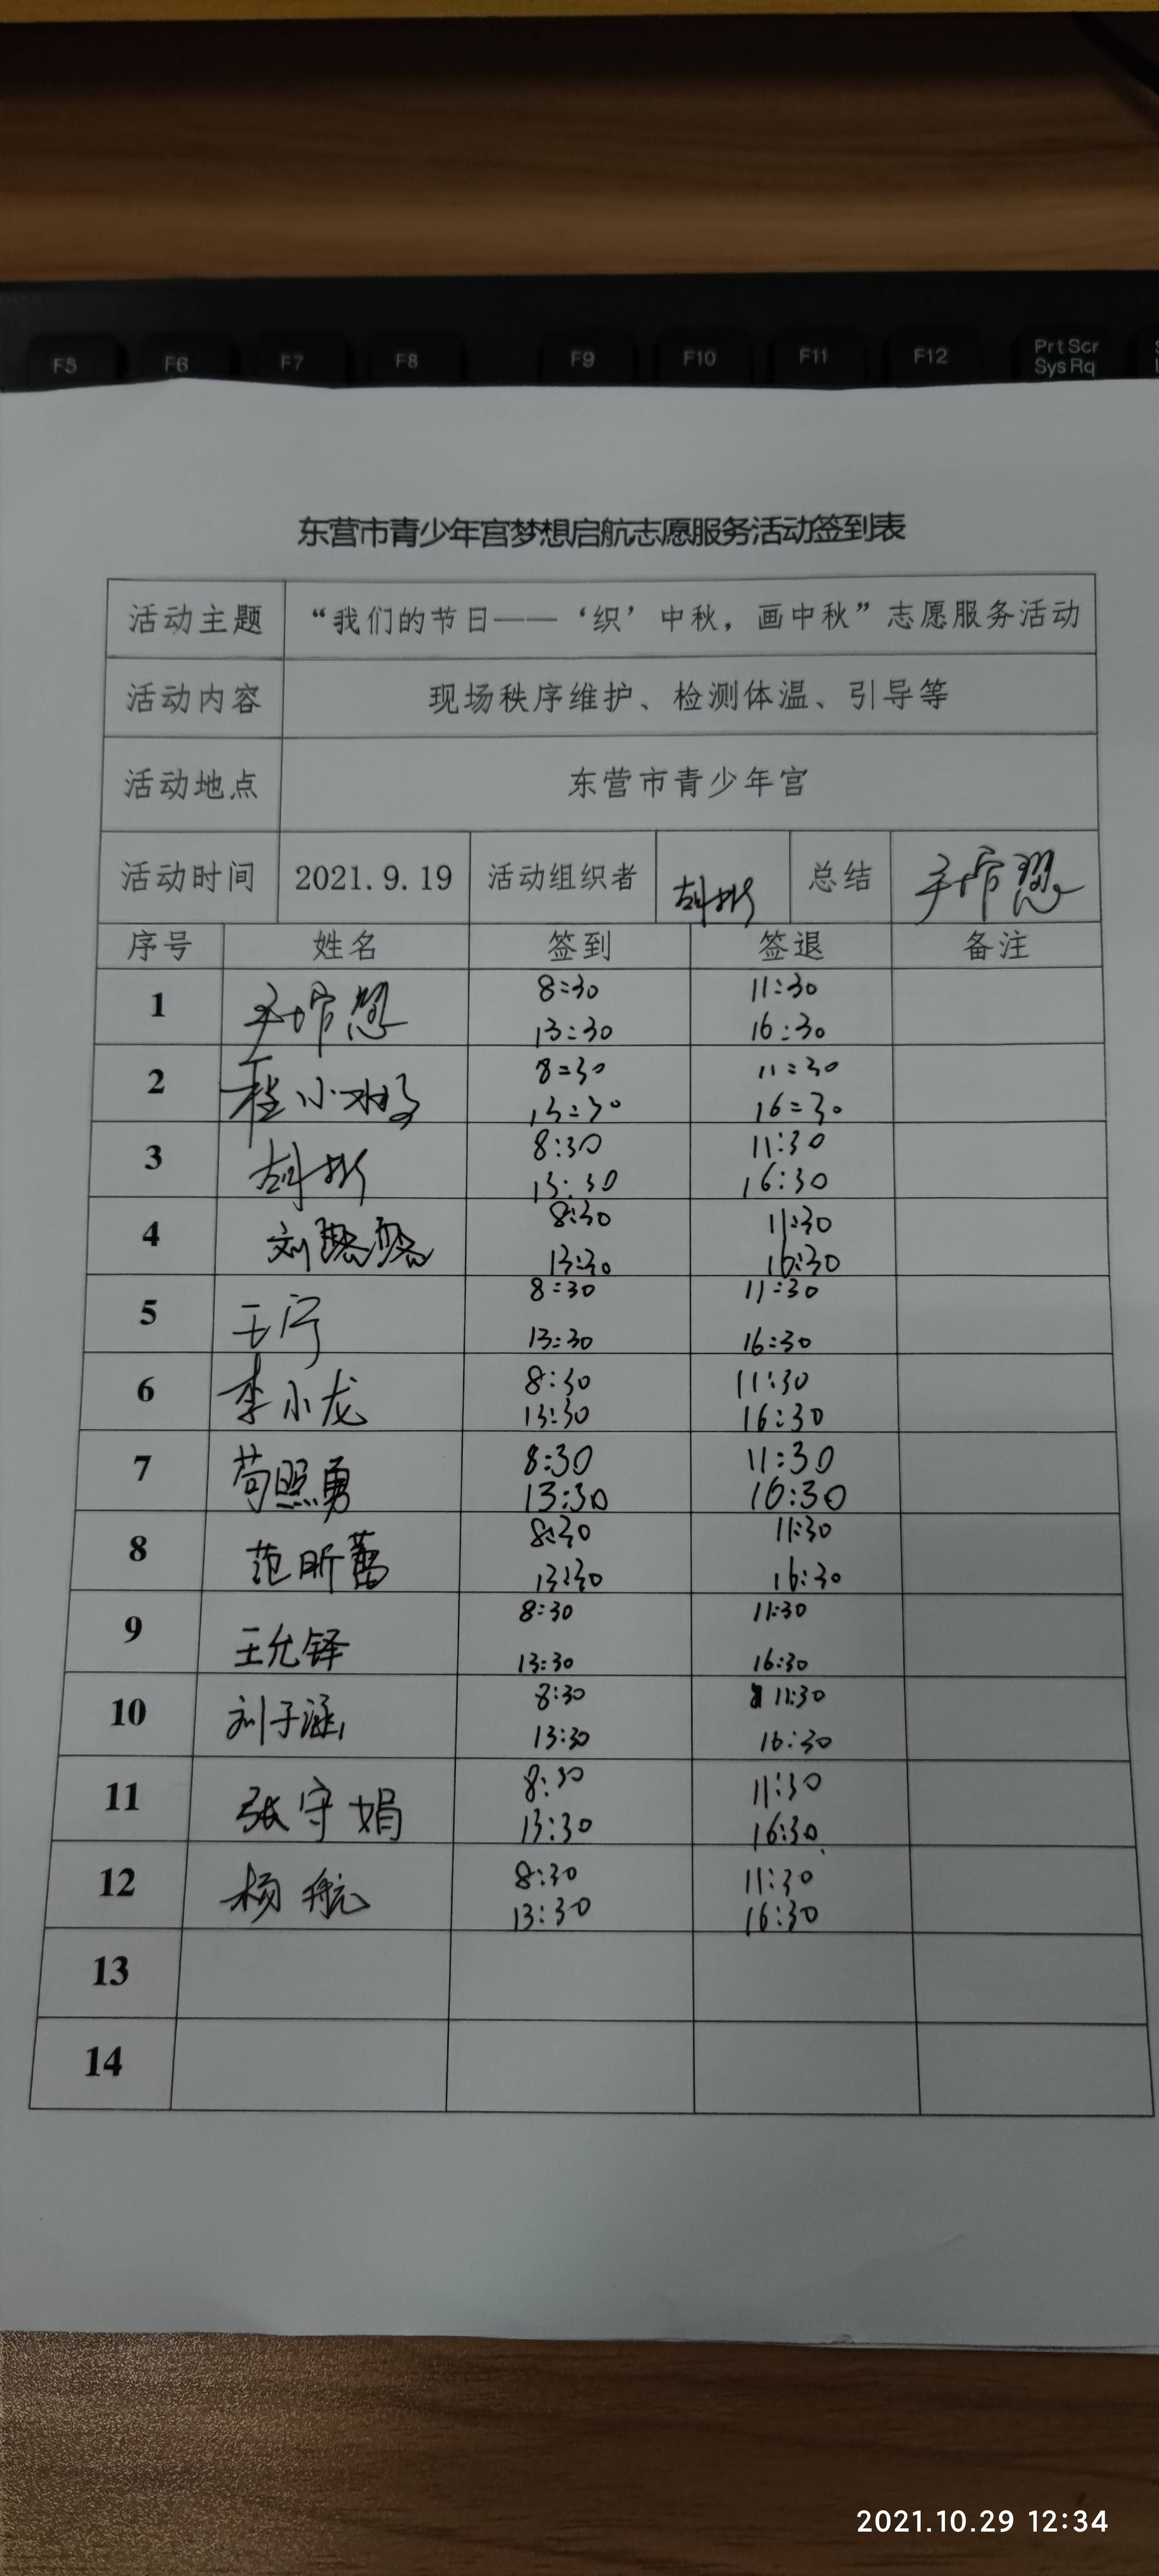 F5 F6 F7 F8 F9 F10 F11 F12 PrtScr
SysRq
东营市青少年宫梦想启航志愿服务活动签到表
活动主题 “我们的节日——‘织’中秋，画中秋”志愿服务活动
活动内容 现场秩序维护、检测体温、引导等
活动地点 东营市青少年宫
活动时间 2021.9.19 活动组织者 总结
序号 姓名 签到 签退 备注
1 8:30 11:30
13:30 16:30
2 8:30 11:30
13:30 16:30
3 8:30 11:30
13:30 16:30
4 刘 8:30 11:30
13:30 16:30
5 王宁 8:30 11:30
13:30 16:30
6 李小龙 8:30 11:30
13:30 16:30
7 苟照勇 8:30 11:30
13:30 16:30
8 范昕蕾 8:30 11:30
13:30 16:30
9 王允铎 8:30 11:30
13:30 16:30
10 刘子涵 8:30 11:30
13:30 16:30
11 张守娟 8:30 11:30
13:30 16:30
12 杨航 8:30 11:30
13:30 16:30
13
14
2021.10.29 12:34